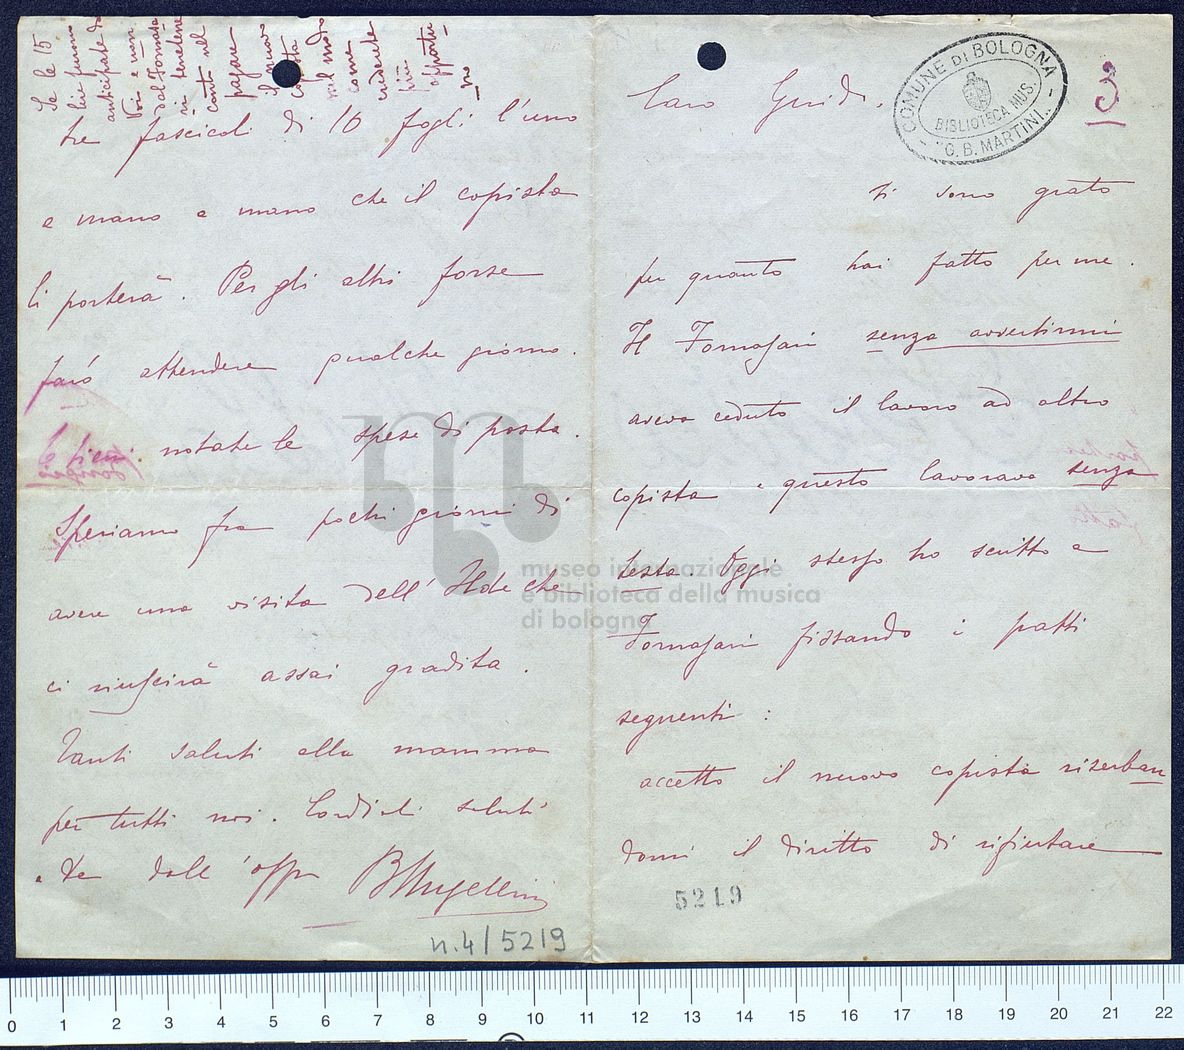 Caro Guido,
ti sono grato
per quanto hai fatto per me.
Il Fornasari senza avvertirmi
aveva ceduto il lavoro ad altro
copista e questo lavorava senza
testa. Oggi stesso ho scritto a
Fornasari fissando i patti
seguenti :
accetto il nuovo copista riserban
domi il diritto di rifiutare
COMUNE DI BOLOGNA
BIBLIOTECA MUS.
"G. B. MARTINI"
5219
Se le 15
lire furono
anticipate da
Voi e non
dal Fornasa
ri tenetene
conto nel
pagare
il nuovo
copista
nel modo
come
crederete
più
opportu-
no
tre fascicoli di 16 fogli l'uno
a mano a mano che il copista
li porterà. Per gli altri forse
farò attendere qualche giorno.
notate le spese di posta.
Speriamo fra pochi giorni di
avere una visita dell' che
ci riuscirà assai gradita.
Tanti saluti alla mamma
per tutti noi. Cordiali saluti
a te dall'aff
n.4/5219
museo internazionale
e biblioteca della musica
di bologna
0 1 2 3 4 5 6 7 8 9 10 11 12 13 14 15 16 17 18 19 20 21 22